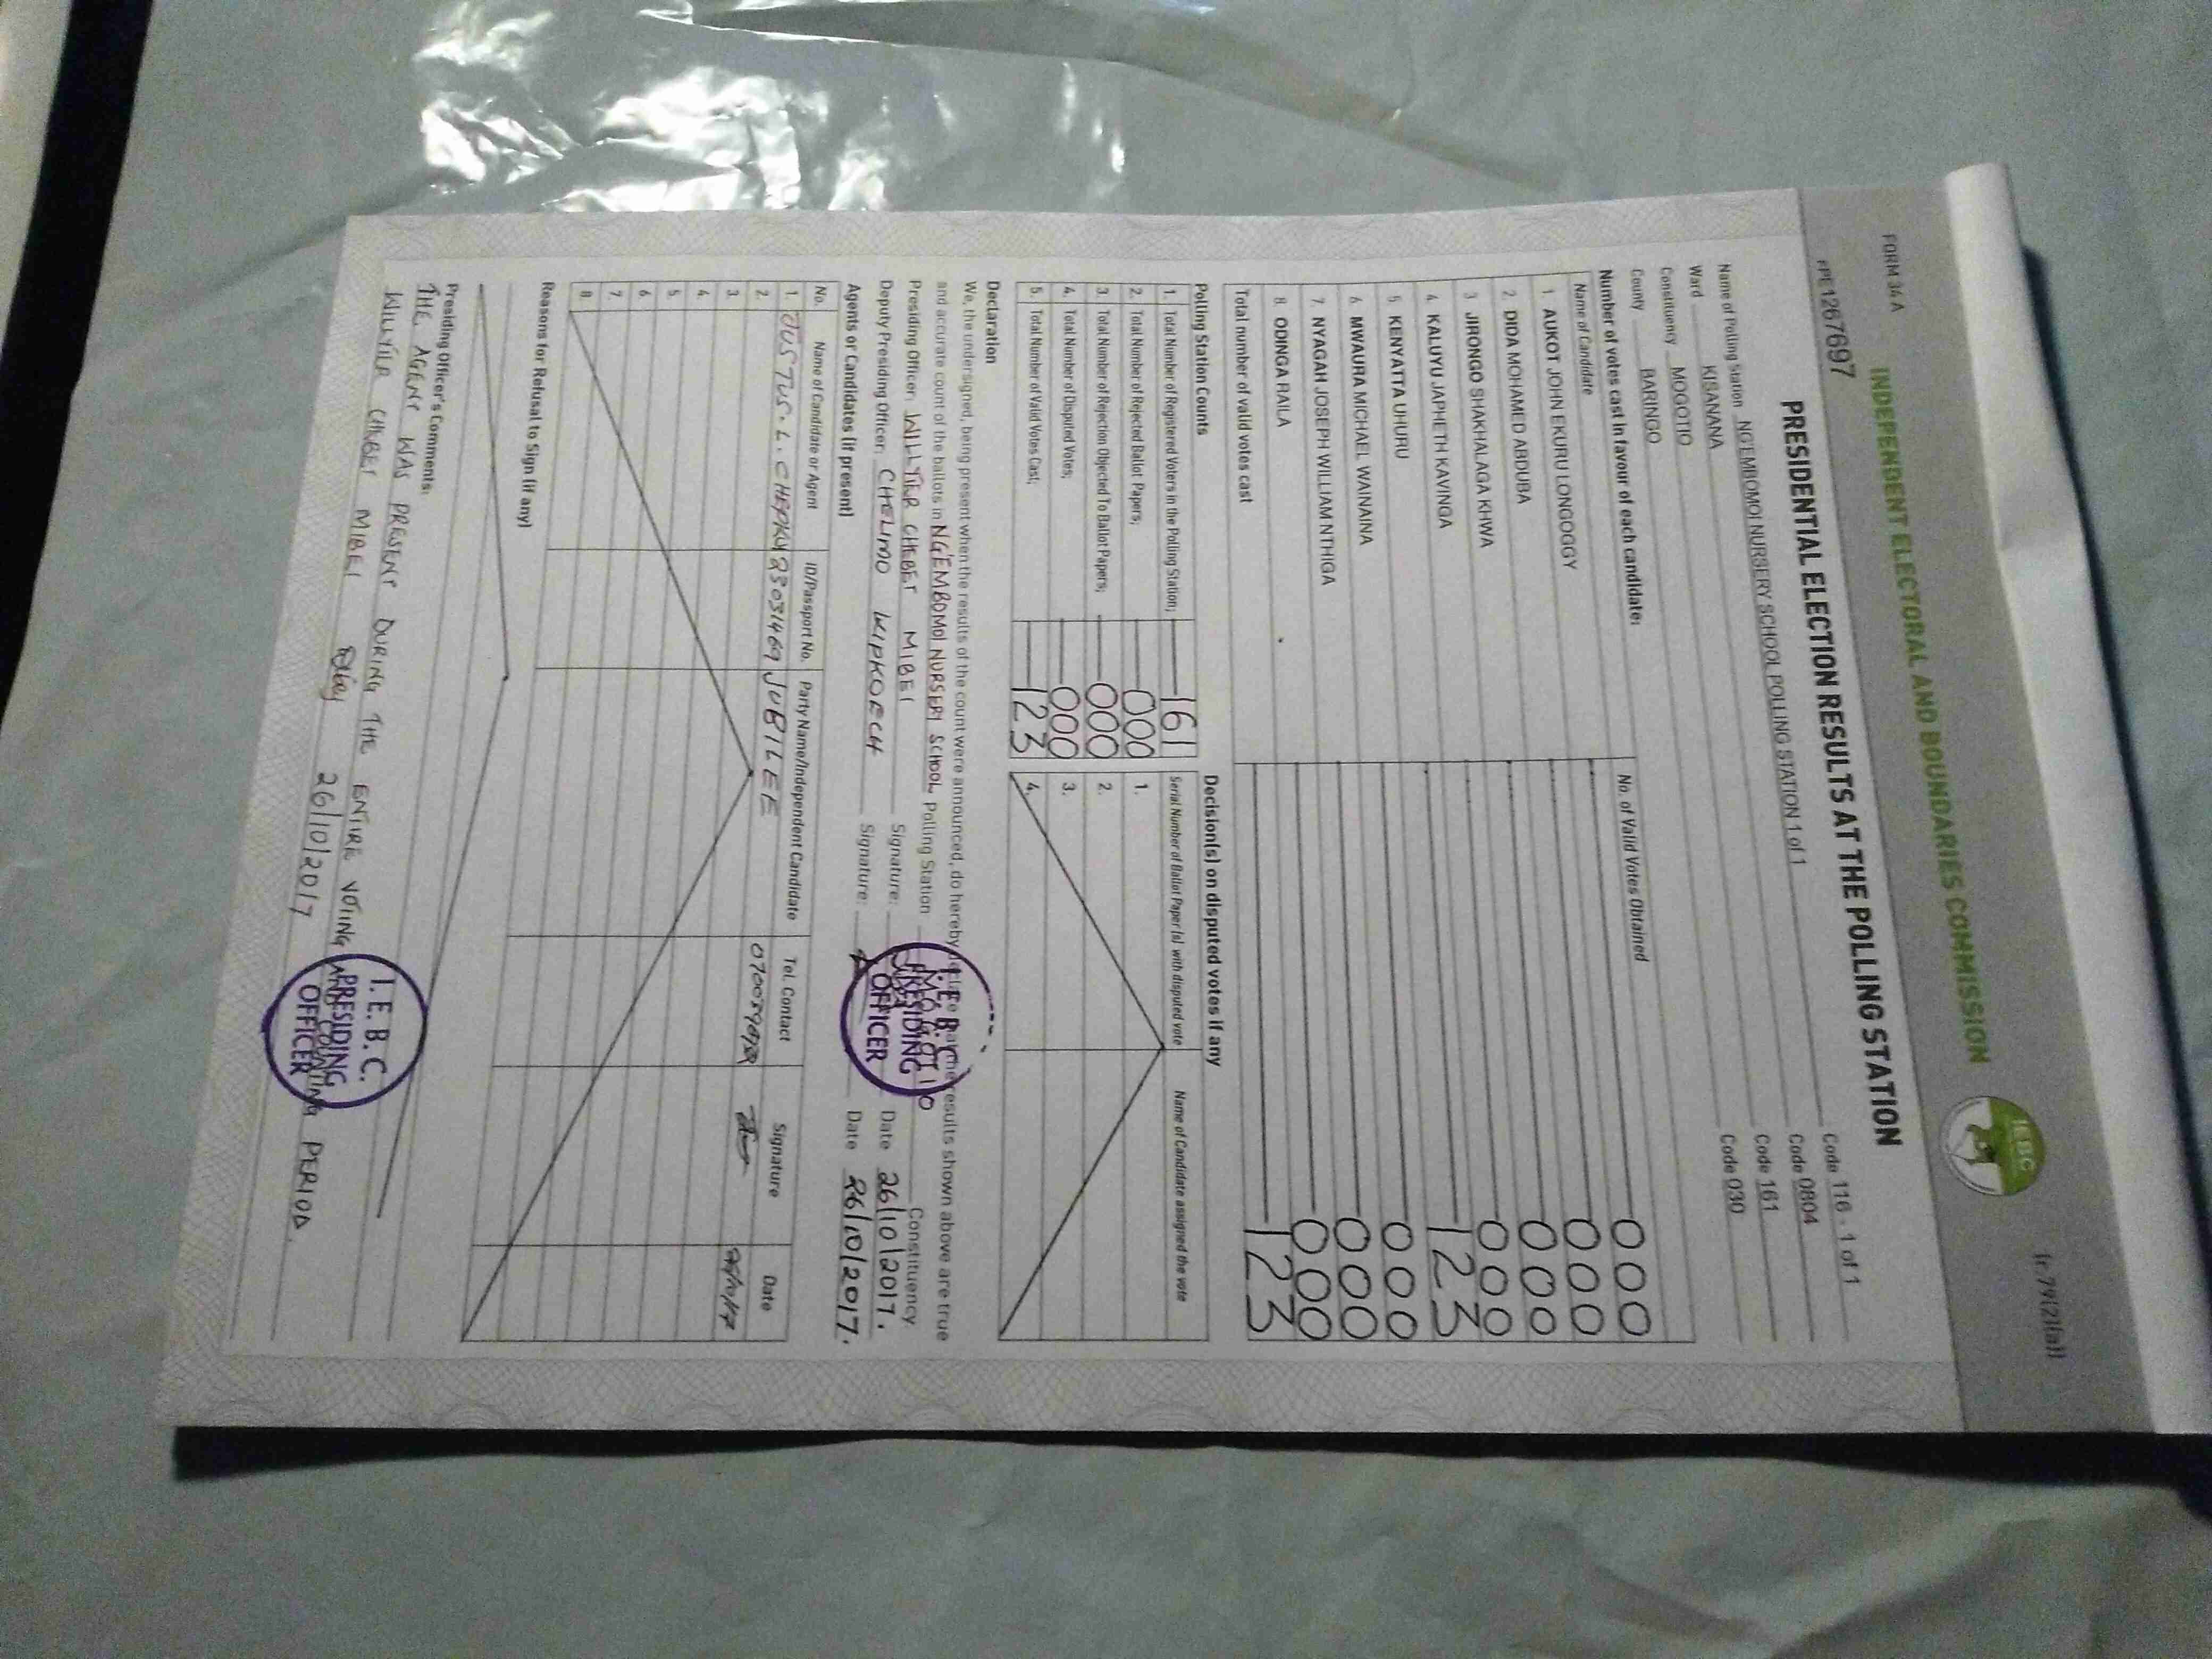 FORM 34 A
(r.79(2)(a))
INDEPENDENT ELECTORAL AND BOUNDARIES COMMISSION
IEBC
FPE1267697
PRESIDENTIAL ELECTION RESULTS AT THE POLLING STATION
Name of Polling Station NG'EMBOMOI NURSERY SCHOOL POLLING STATION 1 of 1 Code 116 - 1 of 1
Ward KISANANA Code 0804
Constituency MOGOTIO Code 161
County BARINGO Code 030
Number of votes cast in favour of each candidate:
Name of Candidate No. of Valid Votes Obtained
1 AUKOT JOHN EKURU LONGOGGY 000
2. DIDA MOHAMED ABDUBA 000
3 JIRONGO SHAKHALAGA KHWA 000
4. KALUYU JAPHETH KAVINGA 000
5 KENYATTA UHURU 123
6 MWAURA MICHAEL WAINAINA 000
7. NYAGAH JOSEPH WILLIAM NTHIGA 000
8. ODINGA RAILA 000
Total number of valid votes cast 123
Polling Station Counts
1. Total Number of Registered Voters in the Polling Station; 161
2. Total Number of Rejected Ballot Papers; 000
3. Total Number of Rejection Objected To Ballot Papers; 000
4. Total Number of Disputed Votes; 000
5. Total Number of Valid Votes Cast; 123
Decision(s) on disputed votes if any
Serial Number of Ballot Paper(s) with disputed vote Name of Candidate assigned the vote
1.
2.
3.
4.
Declaration
We, the undersigned, being present when the results of the count were announced, do hereby results shown above are true
and accurate count of the ballots in NG'EMBOMOI NURSERY SCHOOL Polling Station MOGOTIO Constituency
Presiding Officer: WILLYTER CHEBET MIBEI Signature: Date 26/10/2017.
Deputy Presiding Officer: CHELIMO KIPKOECH Signature: Date 26/10/2017.
I. E. B. C.
PRESIDING
OFFICER
Agents or Candidates (if present)
No. Name of Candidate or Agent ID/Passport No. Party Name/Independent Candidate Tel. Contact Signature Date
1. JUSTUS. L. 23031469 JUBILEE
2.
3.
4.
5.
6.
7.
8.
Reasons for Refusal to Sign (if any)
Presiding Officer's Comments:
THE AGENT WAS PRESENT DURING THE ENTIRE VOTING AND COUNTING PERIOD.
CHEBET MIBEI 26/10/2017
I. E. B. C.
PRESIDING
OFFICER